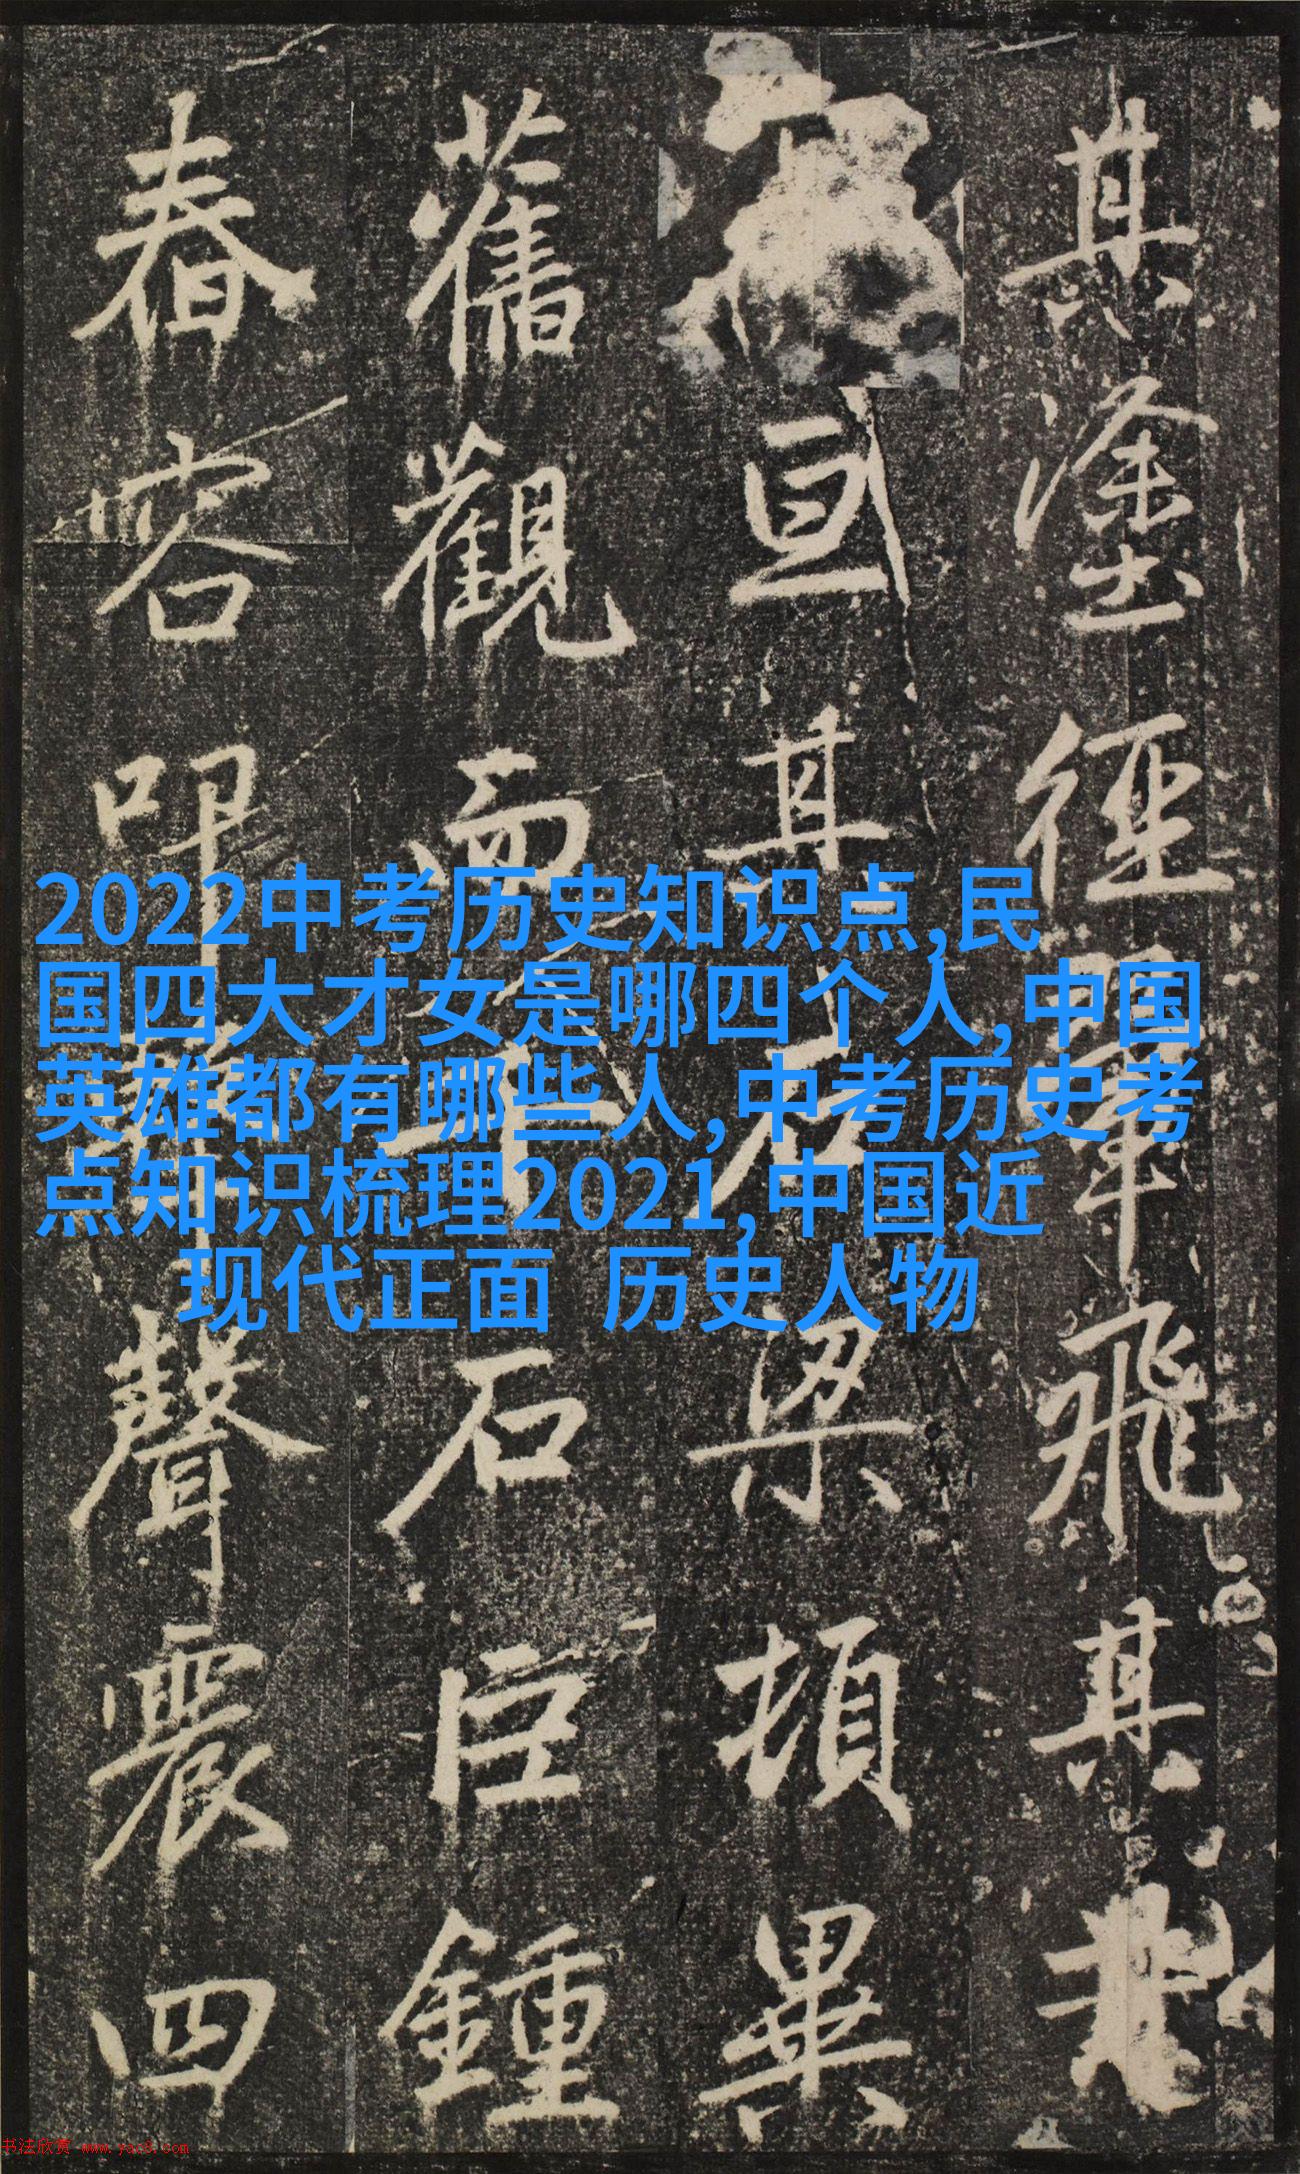 其塗徑翬飛其
亘其石梁頓異
舊觀而千石巨鍾
舂容叩聲震四
2022中考历史知识点,民
国四大才女是哪四个人,中国
英雄都有哪些人,中考历史考
点知识梳理2021,中国近
现代正面 历史人物
书法欣赏 www.yac8.com